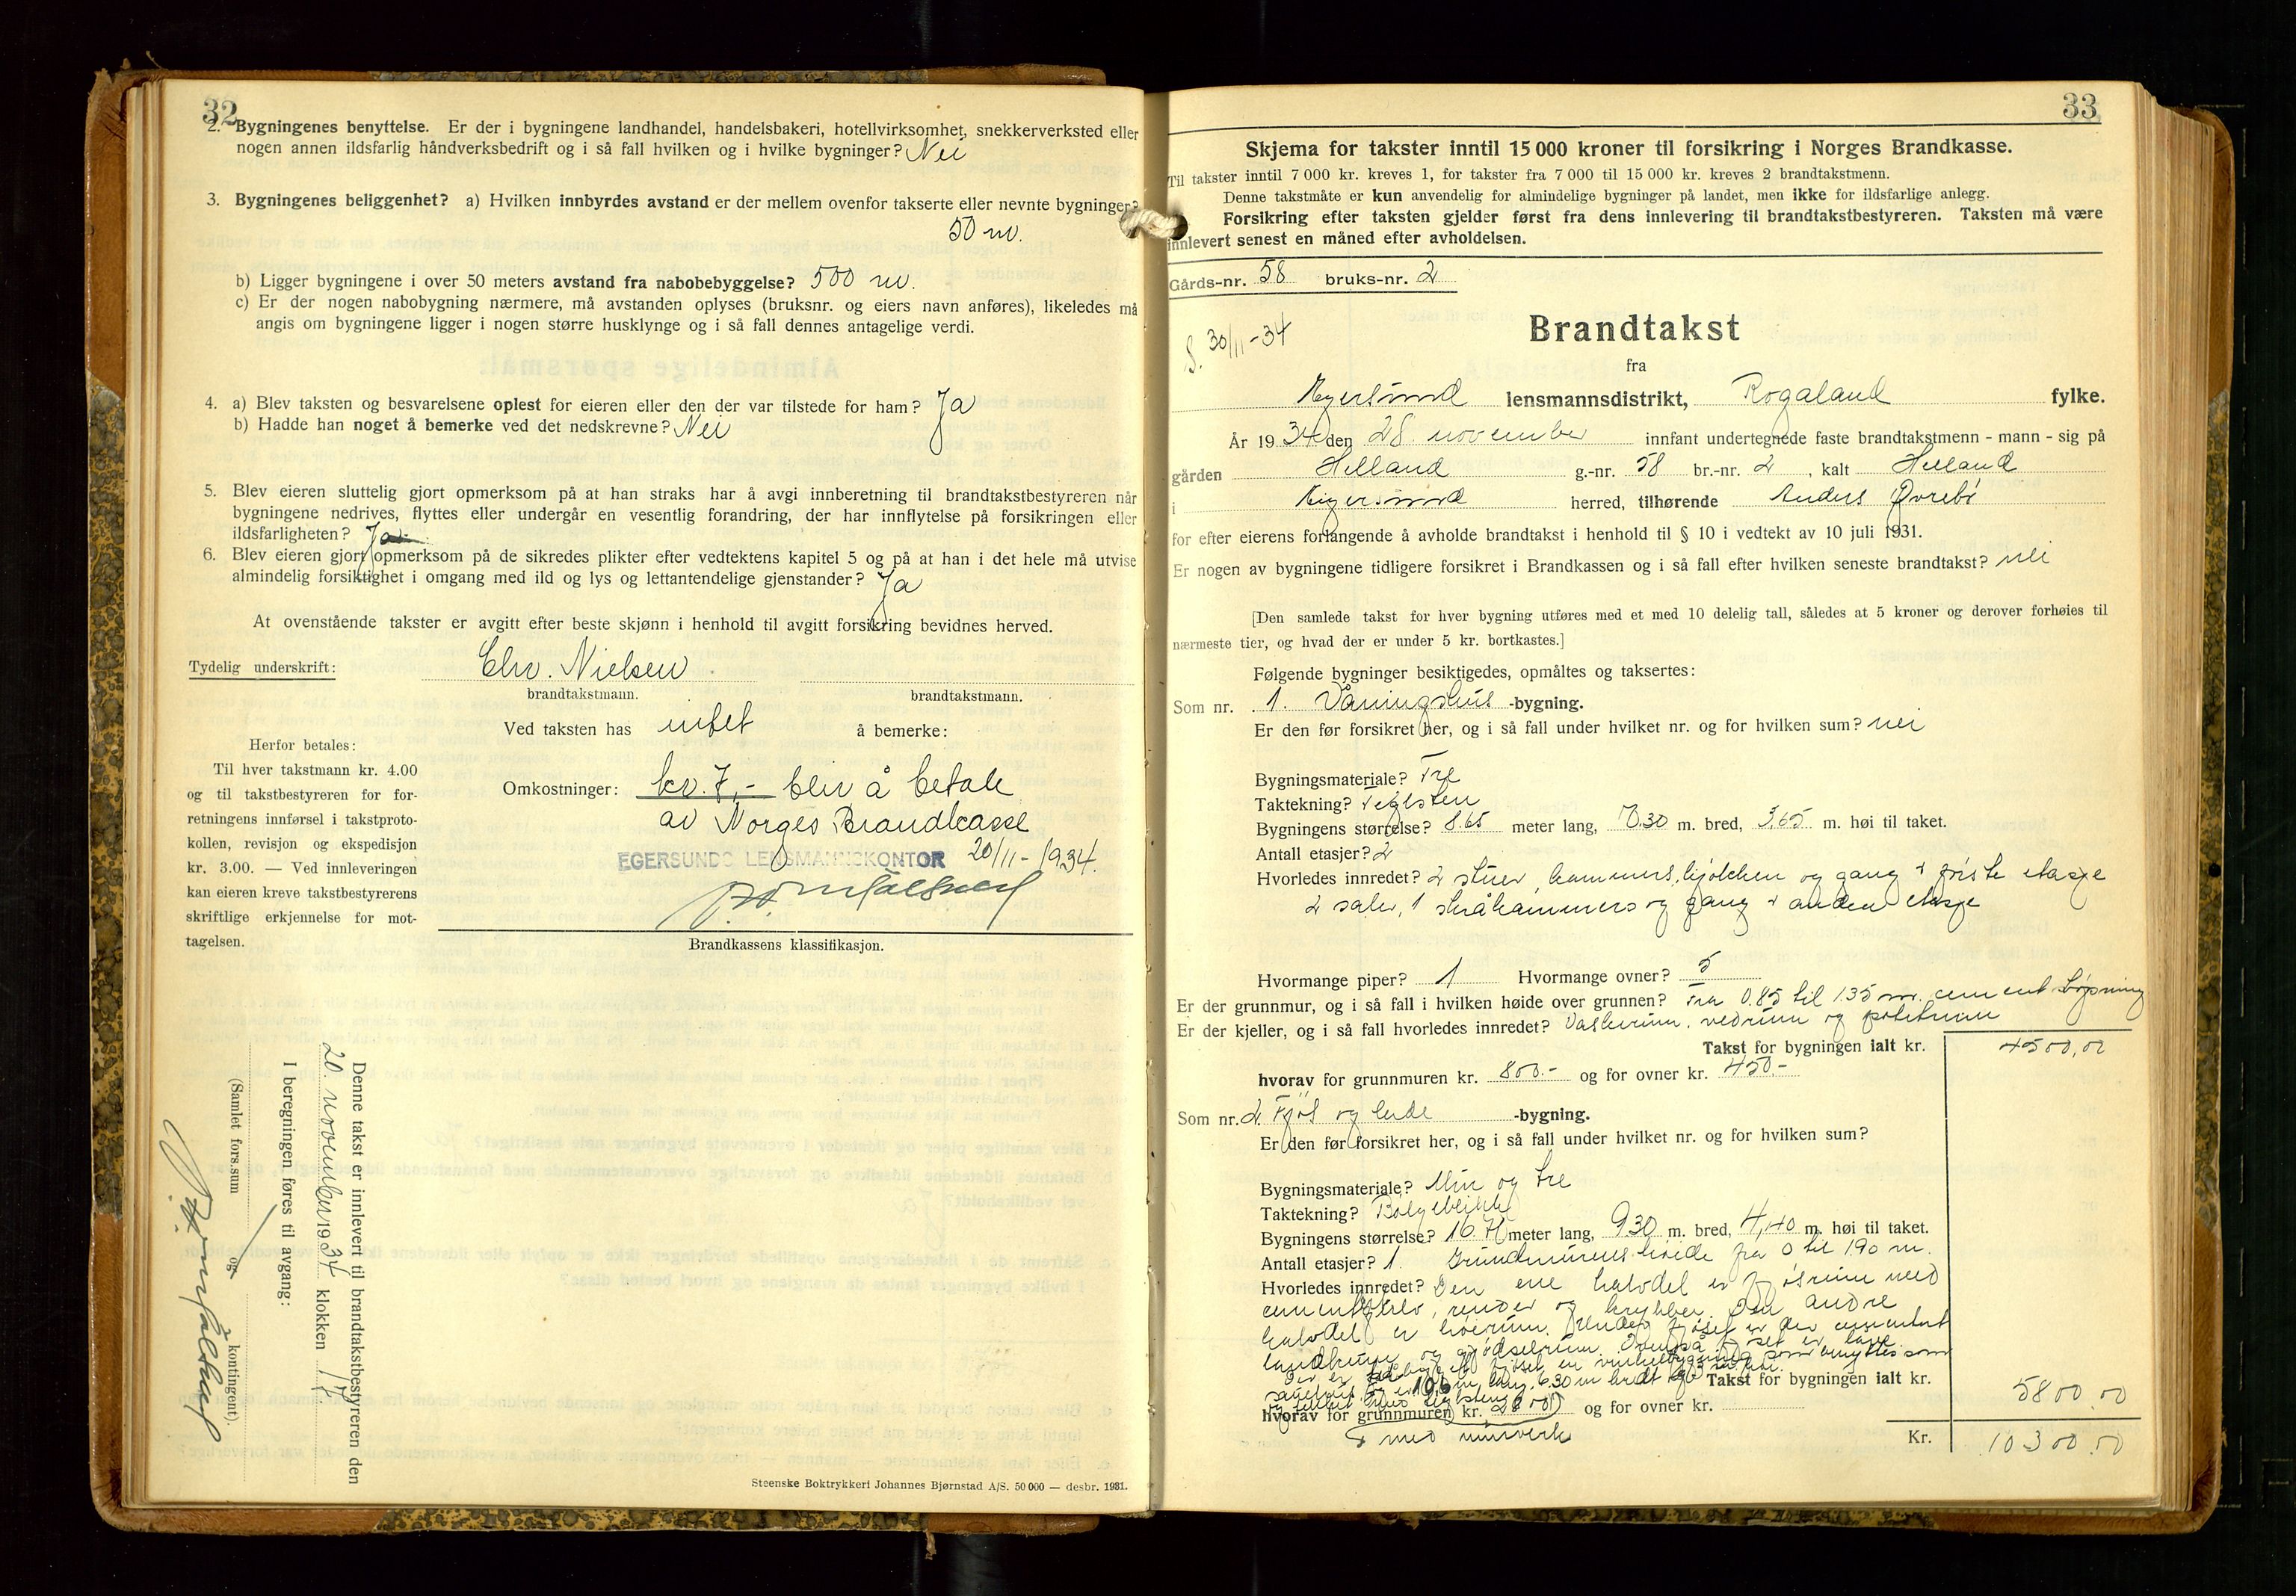 32
2. Bygningenes benyttelse. Er der i bygningene landhandel, handelsbakeri, hotellvirksomhet, snekkerverksted eller
nogen annen ildsfarlig håndverksbedrift og i så fall hvilken og i hvilke bygninger? Nei
3. Bygningenes beliggenhet? a) Hvilken innbyrdes avstand er der mellem ovenfor takserte eller nevnte bygninger?
50 m.
b) Ligger bygningene i over 50 meters avstand fra nabobebyggelse? 500 m.
c) Er der nogen nabobygning nærmere, må avstanden oplyses (bruksnr. og eiers navn anføres), likeledes må
angis om bygningene ligger i nogen større husklynge og i så fall dennes antagelige verdi.
4. a) Blev taksten og besvarelsene oplest for eieren eller den der var tilstede for ham? Ja
b) Hadde han noget å bemerke ved det nedskrevne? Nei
5. Blev eieren sluttelig gjort opmerksom på at han straks har å avgi innberetning til brandtakstbestyreren når
bygningene nedrives, flyttes eller undergår en vesentlig forandring, der har innflytelse på forsikringen eller
ildsfarligheten? Ja
6. Blev eieren gjort opmerksom på de sikredes plikter efter vedtektens kapitel 5 og på at han i det hele må utvise
almindelig forsiktighet i omgang med ild og lys og lettantendelige gjenstander? Ja
At ovenstående takster er avgitt efter beste skjønn i henhold til avgitt forsikring bevidnes herved.
Tydelig underskrift: Chr. Nielsen
brandtakstmann. brandtakstmann.
Ved taksten has intet å bemerke:
Herfor betales:
Til hver takstmann kr. 4.00
og til takstbestyreren for for-
retningens innførsel i takstproto-
kollen, revisjon og ekspedisjon
kr. 3.00. — Ved innleveringen
kan eieren kreve takstbestyrerens
skriftlige erkjennelse for mot-
tagelsen.
Omkostninger: kr. 7,- blir å betale
av Norges Brandkasse
EGERSUNDS LENSMANNSKONTOR 20/11-1934.
Brandkassens klassifikasjon.
Denne takst er innlevert til brandtakstbestyreren den
20. november 1934 klokken 17
I beregningen føres til avgang:
(Samlet fors.sum og kontingent).
Steenske Boktrykkeri Johannes Bjørnstad A/S. 50 000 — desbr. 1931.
33
Skjema for takster inntil 15 000 kroner til forsikring i Norges Brandkasse.
Til takster inntil 7 000 kr. kreves 1, for takster fra 7 000 til 15 000 kr. kreves 2 brandtakstmenn.
Denne takstmåte er kun anvendelig for almindelige bygninger på landet, men ikke for ildsfarlige anlegg.
Forsikring efter taksten gjelder først fra dens innlevering til brandtakstbestyreren. Taksten må være
innlevert senest en måned efter avholdelsen.
Gårds-nr. 58 bruks-nr. 2
S. 30/11-34
Brandtakst
fra
Egersund lensmannsdistrikt, Rogaland fylke.
År 1934 den 28 november innfant undertegnede faste brandtakstmenn - mann - sig på
gården Helland g.-nr. 58 br.-nr. 2, kalt Helland
i Eigersund herred, tilhørende Anders Øvrebø
for efter eierens forlangende å avholde brandtakst i henhold til § 10 i vedtekt av 10 juli 1931.
Er nogen av bygningene tidligere forsikret i Brandkassen og i så fall efter hvilken seneste brandtakst? nei
[Den samlede takst for hver bygning utføres med et med 10 delelig tall, således at 5 kroner og derover forhøies til
nærmeste tier, og hvad der er under 5 kr. bortkastes.]
Følgende bygninger besiktigedes, opmåltes og taksertes:
Som nr. 1. Våningshus -bygning.
Er den før forsikret her, og i så fall under hvilket nr. og for hvilken sum? nei
Bygningsmateriale? Tre
Taktekning? Teglsten
Bygningens størrelse? 8.65 meter lang, 7.30 m. bred, 3,65 m. høi til taket.
Antall etasjer? 2
Hvorledes innredet? 2 stuer, kammers, kjøkken og gang i første etasje
2 saler, 1 skråkammers og gang i anden etasje
Hvormange piper? 1 Hvormange ovner? 5
Er der grunnmur, og i så fall i hvilken høide over grunnen? Fra 0.85 til 1.35 m. cement støpning
Er der kjeller, og i så fall hvorledes innredet? Vaskerum, vedrum og potetrum
Takst for bygningen ialt kr. 4500,00
hvorav for grunnmuren kr. 800.- og for ovner kr. 450.-
Som nr. 2. Fjøs og løde -bygning.
Er den før forsikret her, og i så fall under hvilket nr. og for hvilken sum?
Bygningsmateriale? Mur og tre
Taktekning? Bølgeblikk
Bygningens størrelse? 10.71 meter lang, 9.30 m. bred, 4,40 m. høi til taket.
Antall etasjer? 1. Grundmurens høide fra 0 til 1.90 m.
Hvorledes innredet? Den ene halvdel er fjøsrum med
cementgolv, render og krybber. Den andre
halvdel er høirum. Under fjøset er der cementert
landkum og gjødselrum. Ovenpå fjøset er lave.
Takst for bygningen ialt kr. 5800.00
hvorav for grunnmuren kr. og for ovner kr.
med murverk
Kr. 10300.00